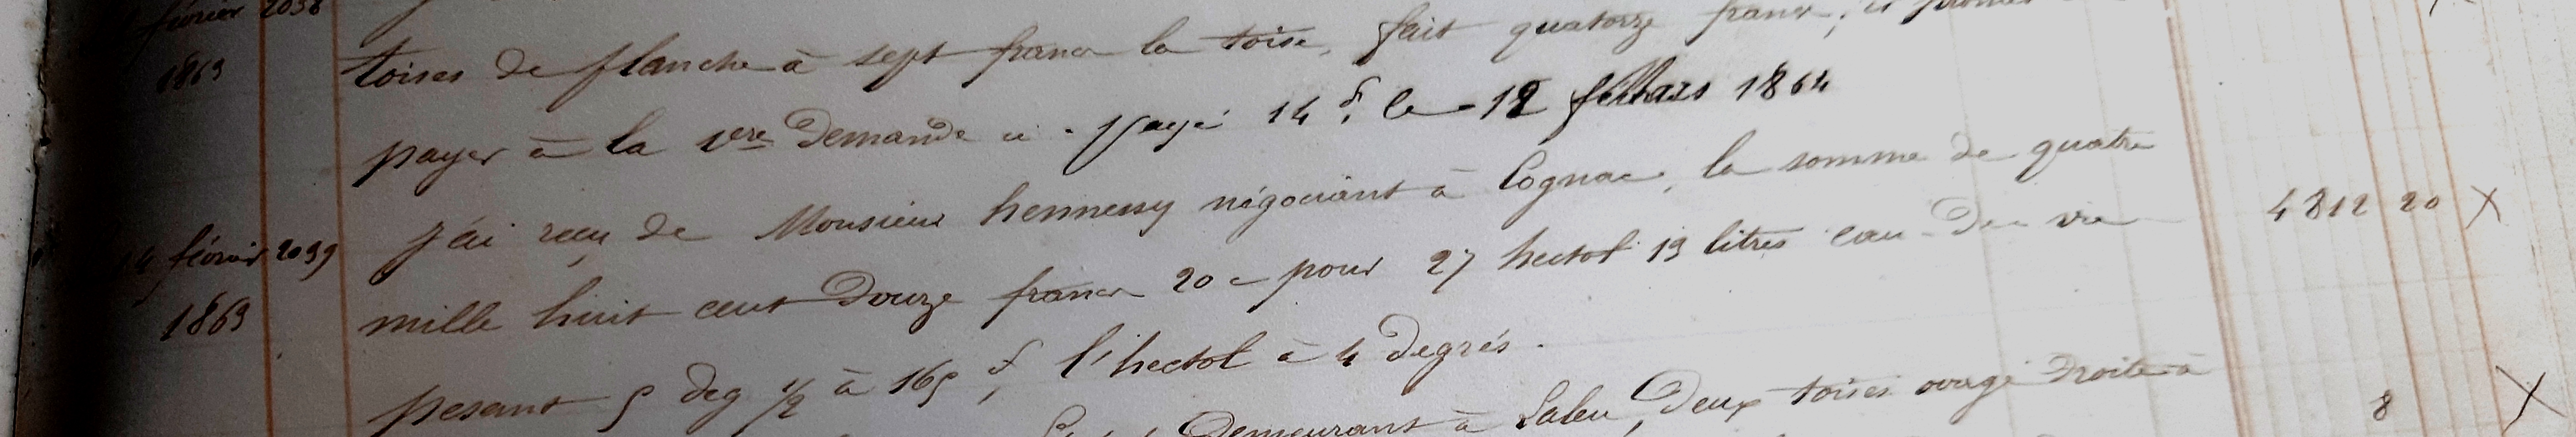 février 2038
1863 toises de planche à sept francs la toise, fait quatorze francs, et promet
payer à la 1ere demande ci. payé 14 f. le 12 Mars 1864
14 février 2039 J'ai reçu de Monsieur hennessy négociant à Cognac, la somme de quatre
1863 mille huit cent douze francs 20 c pour 27 hectol 19 litres eau de vie 4812 20 X
pesant 5 deg 1/2 à 165 f l'hectol à 4 degrés.
Demeurant à Laleu, Deux toises ouvage droite à 8 X